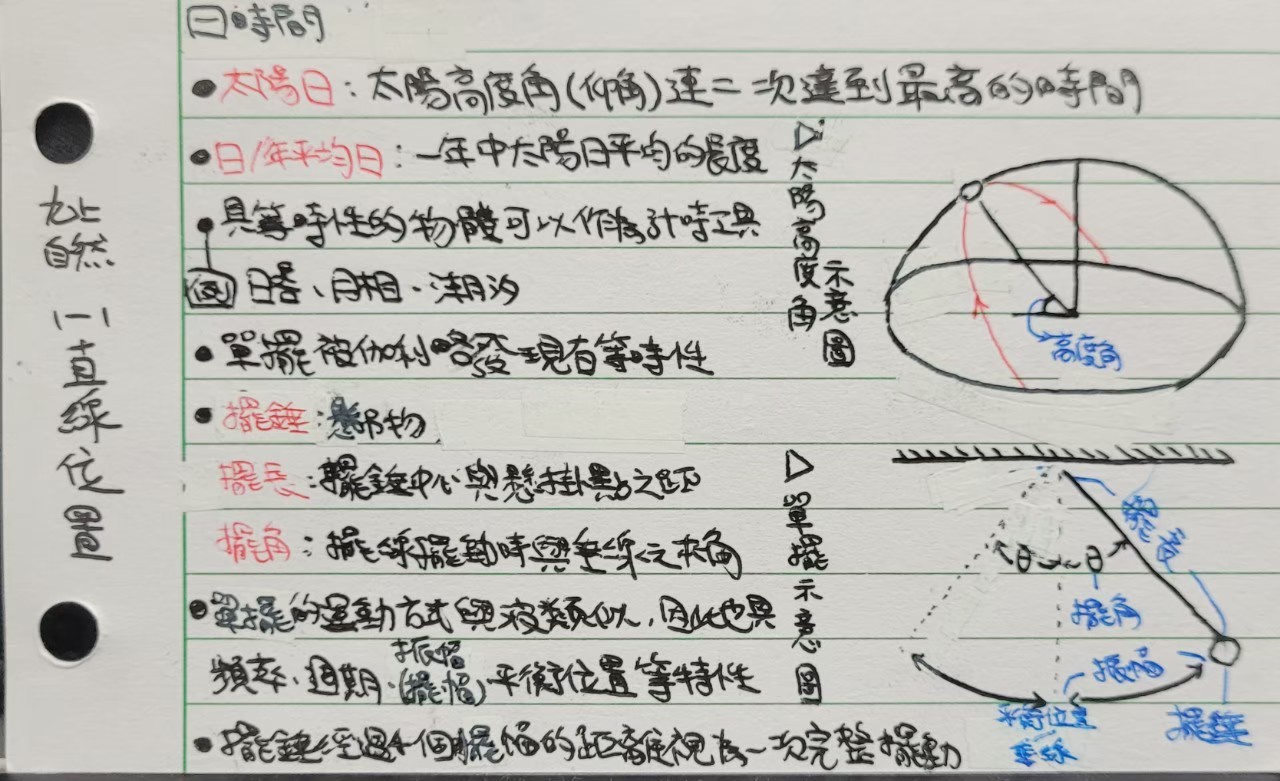 九上
自然
(一)直線位置
㊀時間
●太陽日：太陽高度角(仰角)連二次達到最高的時間
●日/年平均日：一年中太陽日平均的長度
●具等時性的物體可以作為計時工具
例 日晷、月相、潮汐
●單擺被伽利略發現有等時性
●擺錘：懸吊物
擺長：擺錘中心與懸掛點之距
擺角：擺線擺動時與垂線之夾角
●單擺的運動方式與波類似，因此也具
頻率、週期、振幅(擺幅)、平衡位置等特性
●擺錘經過4個擺幅的距離視為一次完整擺動
▷太陽高度角示意圖
高度角
▷單擺示意圖
擺長
θ θ
擺角
振幅
平衡位置
垂線
擺錘